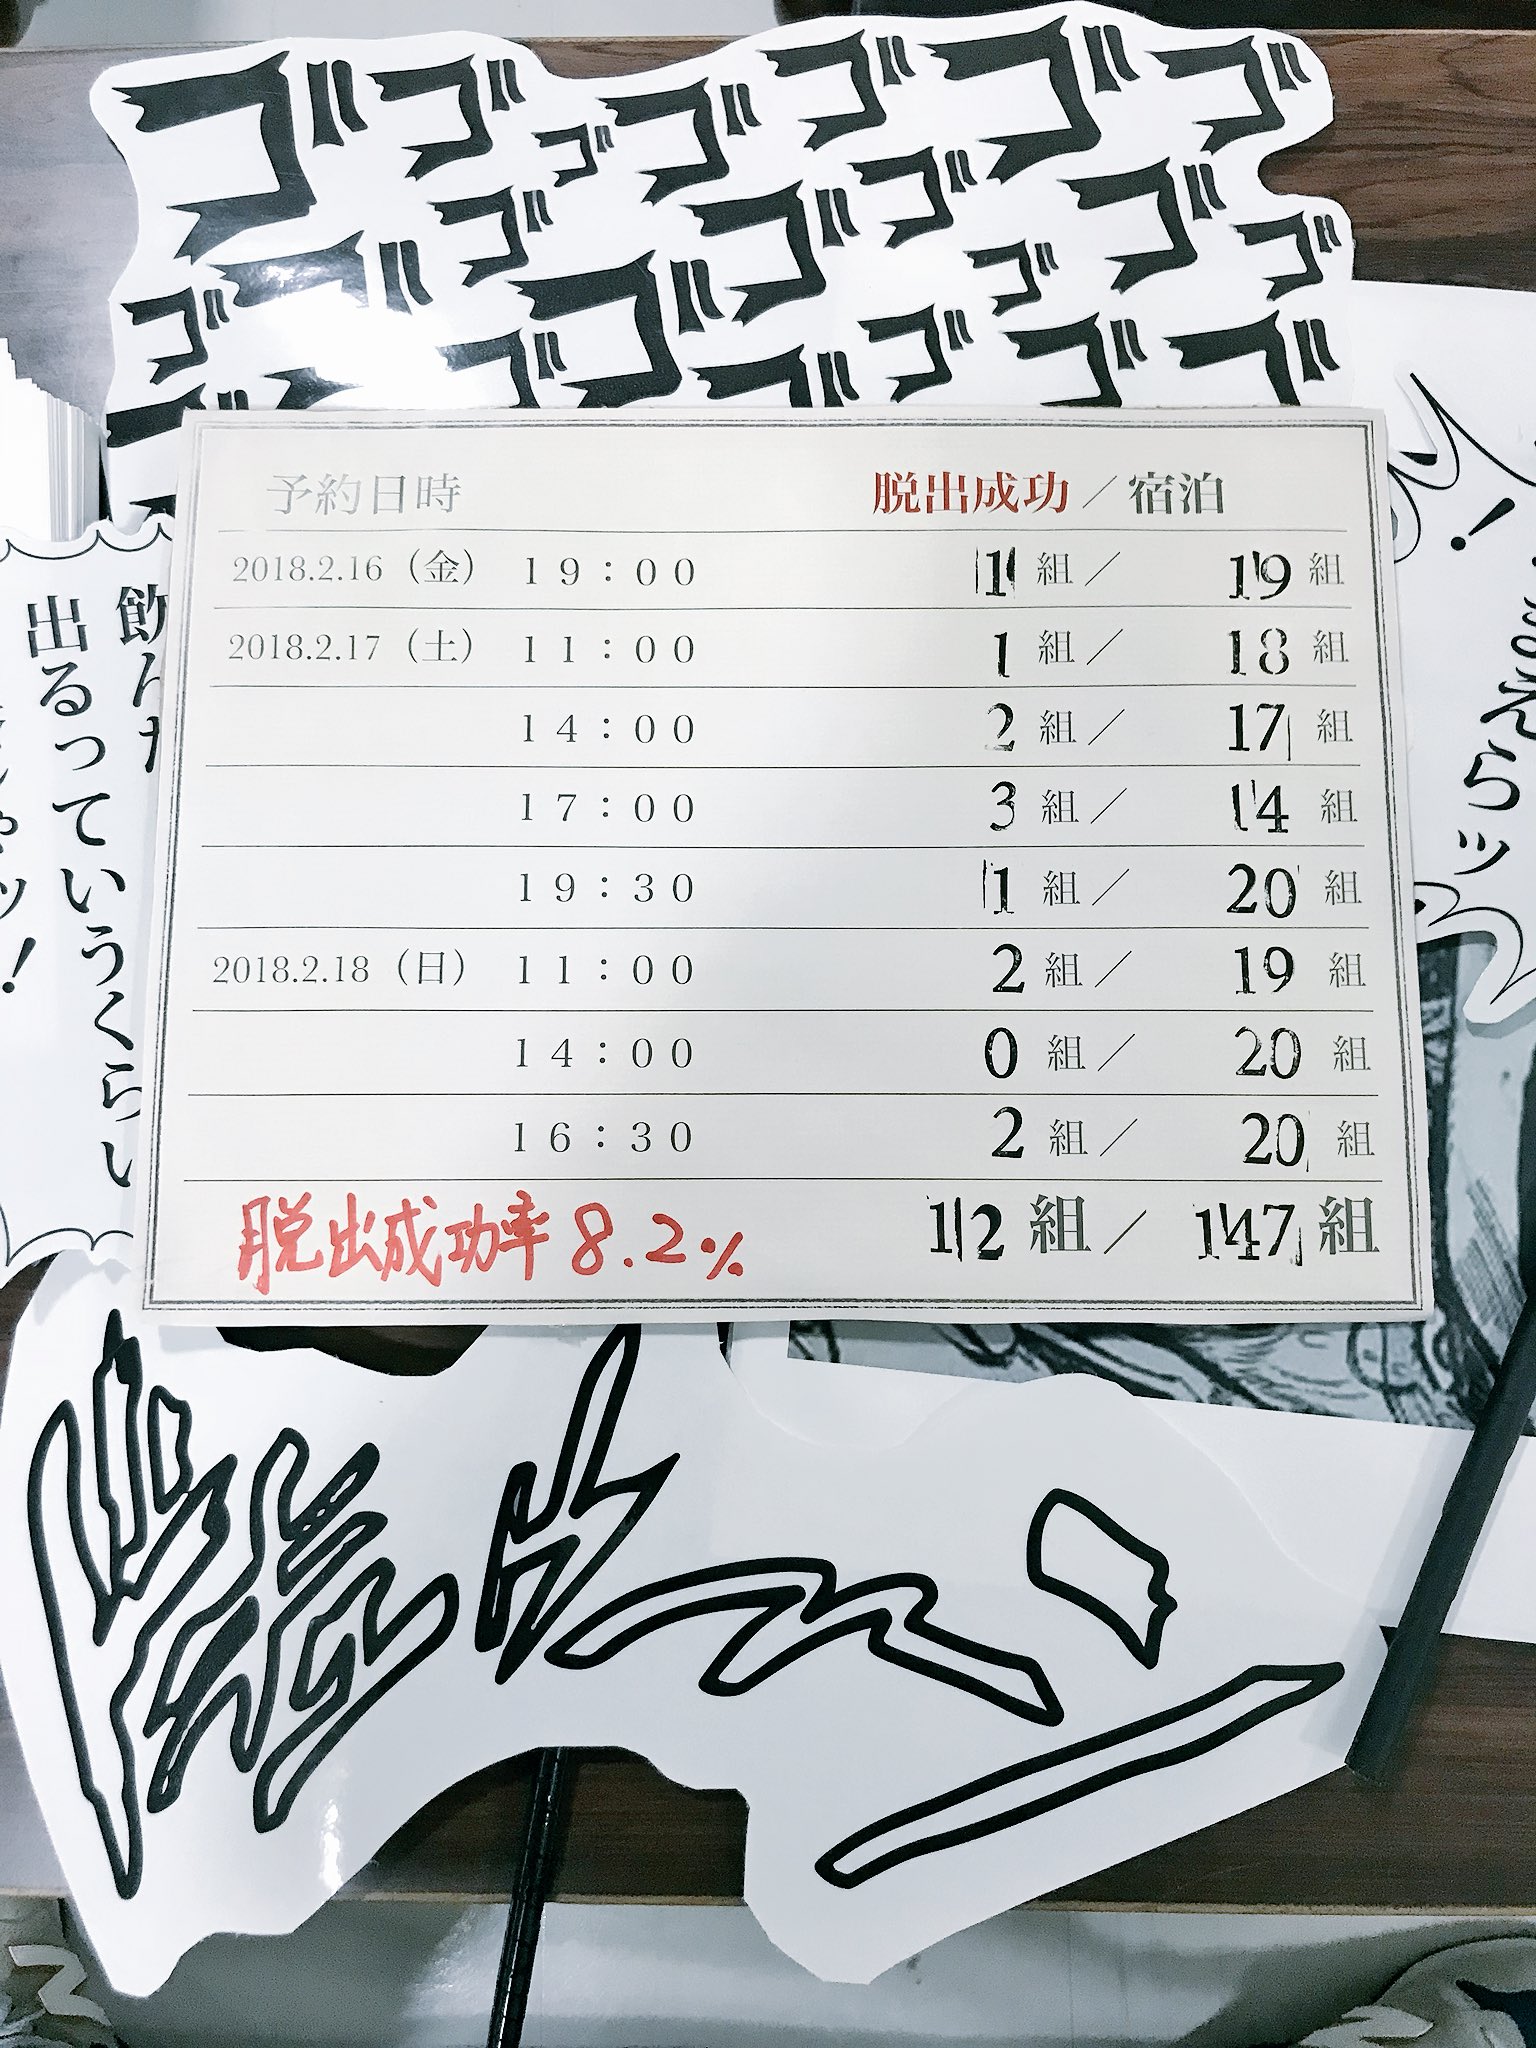 ゴゴゴゴゴゴゴ
ゴゴゴゴゴ
ゴゴゴゴ
ゴゴゴゴゴゴ
予約日時 脱出成功／宿泊
2018.2.16（金） 19：00 1組／19組
2018.2.17（土） 11：00 1組／18組
14：00 2組／17組
17：00 3組／14組
19：30 1組／20組
2018.2.18（日） 11：00 2組／19組
14：00 0組／20組
16：30 2組／20組
脱出成功率8.2% 12組／147組
飲んだ
出るっていうくらい
！